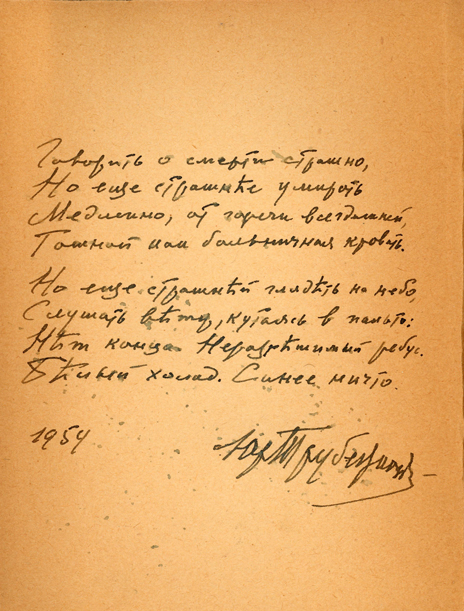 Говорить о смерти страшно,
Но еще страшнѣе умирать
Медленно, от горечи всегдашней,
Тошной или больничная кровать.
Но еще страшнѣй глядѣть на небо,
Слушать вѣтер, кутаясь в пальто:
Нѣт конца. Неразрѣшимый ребус.
Бѣлый холод. Синее ничто.
1954
Юр Трубецкой